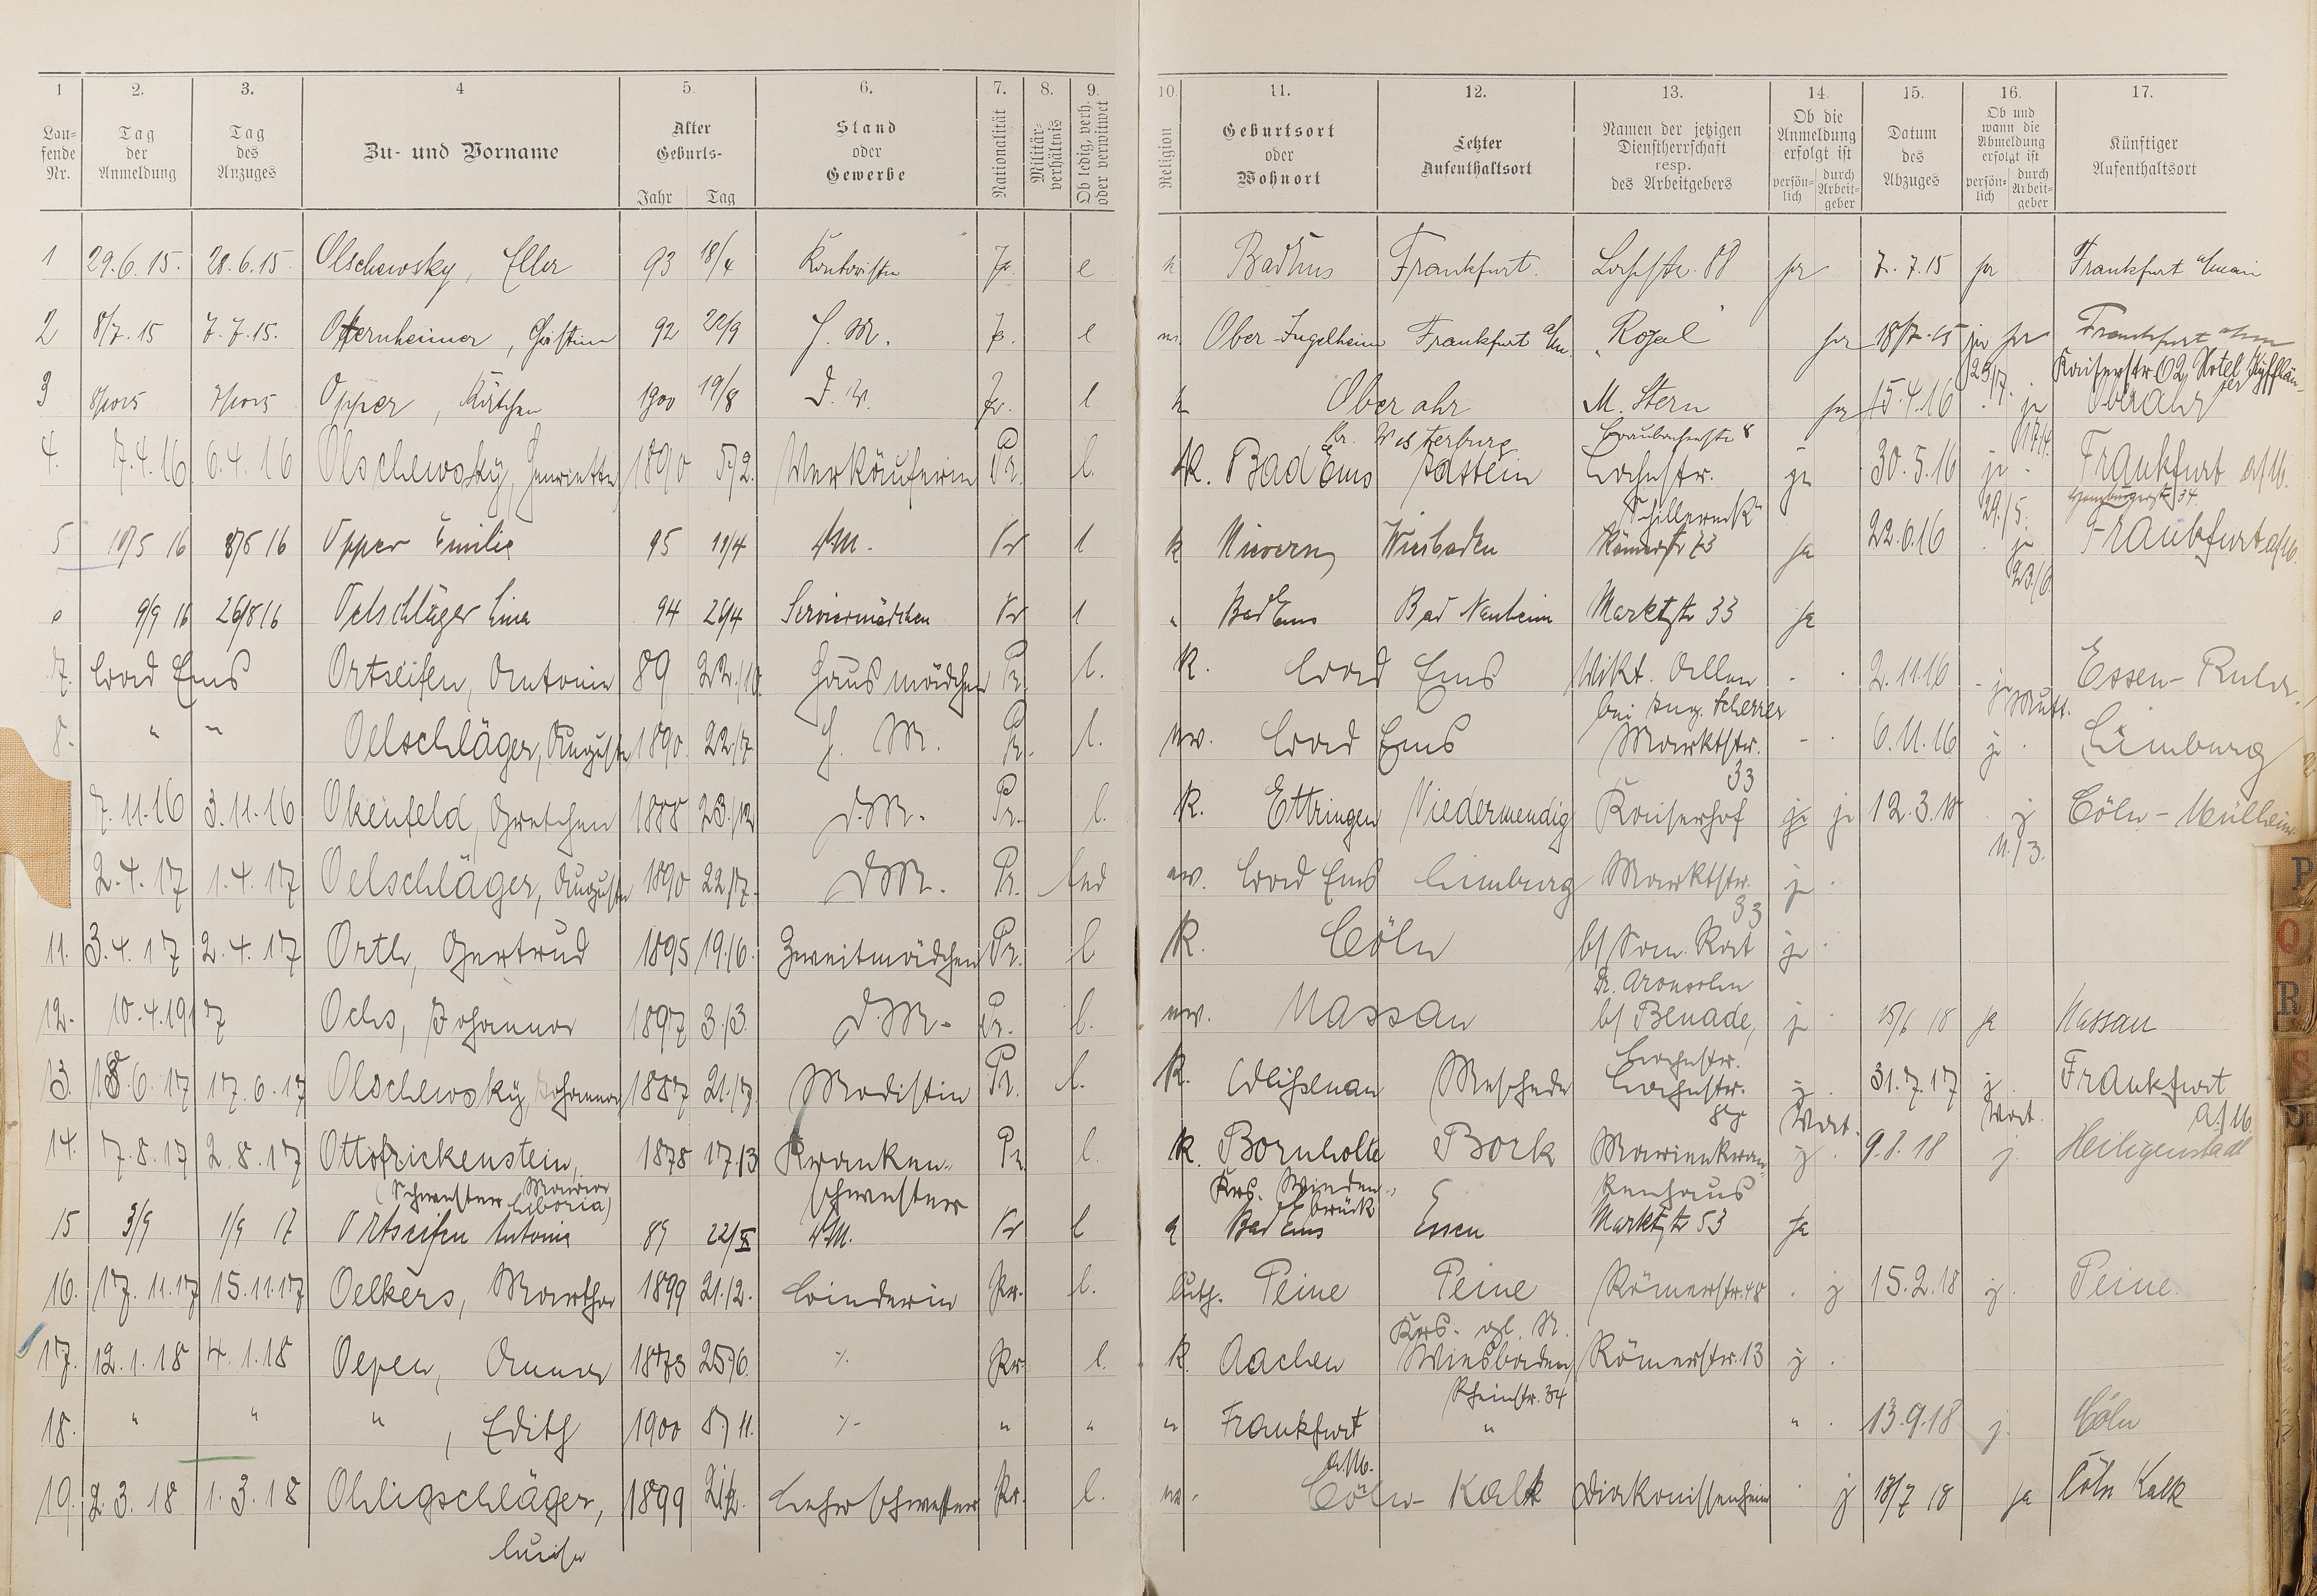 1 2. 3. 4 5. 6. 7. 8. 9. 10. 11. 12. 13. 14. 15. 16. 17.
Lau-fende Nr. Tag der Anmeldung Tag des Anzuges Zu- und Vorname Alter Geburts- Jahr Tag Stand oder Gewerbe Nationalität Militär-verhältnis Ob ledig, verh. oder verwitwet Religion Geburtsort oder Wohnort Letzter Aufenthaltsort Namen der jetzigen Dienstherrschaft resp. des Arbeitgebers Ob die Anmeldung erfolgt ist persön-lich durch Arbeit-geber Datum des Abzuges Ob und wann die Abmeldung erfolgt ist persön-lich durch Arbeit-geber Künftiger Aufenthaltsort
1 29.6.15. 28.6.15 Olschewsky, Ella 93 18/4 Kontoristin Pr. l k Bad Ems Frankfurt. Lahnstr. 88 ja 7.7.15 ja Frankfurt a/Main
2 8/7.15 7.7.15. Otternheimer, Christine 92 22/9 H. M. Pr. l Ober-Ingelheim Frankfurt a/M. "Royal" ja 18/7.15 ja Frankfurt a/M
23/7. Kaiserstr. 62, Hotel Kyffhäu-
ser
3 8/10 15 7/10 15 Opper, Kätchen 1900 19/8 D. M. Pr. l k Oberahr M. Stern ja 15.4.16 ja Oberahr
Kr. Westerburg Graubachstr 8 17/4.
4. 7.4.16 6.4.16 Olschewsky, Henriette 1890 5/2. Verkäuferin Pr. l. K. Bad Ems Idstein Lahnstr. ja 30.5.16 ja Frankfurt a/M.
"Schillereck" 29./5. Hamburgerstr. 34
5 10/5 16 8/5 16 Opper Emilie 95 11/4 D.M. Pr l k Nievern Wiesbaden Römerstr 73 ja 22.6.16 ja Frankfurt a/M.
23./6.
9/9 16 26/8 16 Oelschläger Lina 94 26/4 Serviermädchen Pr l " Bad Ems Bad Nauheim Marktstr 33 ja
7. Bad Ems Ortseifen, Antonie 89 22./10. Hausmädchen Pr. l. K. Bad Ems Vikt. Allee 2.11.16 ja Essen-Ruhr.
bei Aug. Scherrer
8. " " Oelschläger, Auguste 1890. 22./7. H. M. Pr. l. ev. Bad Ems Marktstr. 6.11.16 ja Limburg
33
7.11.16 3.11.16 Okenfeld, Gretchen 1888 23./12 D.M. Pr. l. K. Ettringen Niedermendig Kaiserhof ja ja 12.3.18 j Cöln-Mülheim.
11./3.
2.4.17 1.4.17 Oelschläger, Auguste 1890 22./7. D.M. Pr. led ev. Bad Ems Limburg Marktstr. ja
33
11. 3.4.17 2.4.17 Orth, Gertrud 1895 19./6. Zweitmädchen Pr. l K. Cöln b/ San. Rat ja
Dr. Aronsohn
12. 10.4.1917 Ochs, Johanna 1897 3./3. D.M. Pr. l. ev. Nassau b/ Benade, ja 15/6 18 ja Nassau
Lahnstr.
13. 18.6.17 17.6.17 Olschewsky, Johanna 1887 21./7. Modistin Pr. l. K. Weißenau Meschede Lahnstr. j 31.7.17 j Frankfurt
87 Wart. Wart. a./M.
14. 7.8.17 2.8.17 Ottofrickenstein, 1878 17./3 Kranken- Pr. l. K. Bornholte Bork Marienkran- j. 9.8.18 j. Heiligenstadt
Maria
(Schwester Liboria) schwester Krs. Wieden-brück kenhaus
15 3/9 1/9 17 Ortseifen Antonie 89 22/X D.M. Pr l Bad Ems Essen Marktstr 53 ja
16. 17.11.17 15.11.17 Oelkers, Martha 1899 21./2. Binderin Pr. l. luth. Peine Peine Römerstr. 48 j 15.2.18 j. Peine
17. 12.1.18 4.1.18 Oepen, Anna 1873 25./6. ./. Pr. l. K. Aachen Wiesbaden, Römerstr. 13 j.
Rheinstr. 34
18. " " ", Edith 1900 8./11. ./. " " " Frankfurt " " 13.9.18 j. Cöln
a/M.
19. 2.3.18 1.3.18 Ohligschläger, 1899 Lehrschwester Pr. l. ev. Cöln-Kalk Diakonissenheim j 18/7 18 ja Cöln Kalk
Luise
P
Q
R
S